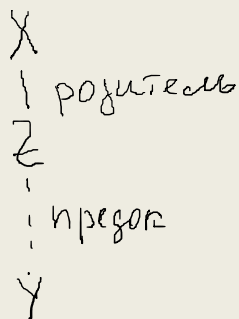 X
родитель
Z
предок
Y